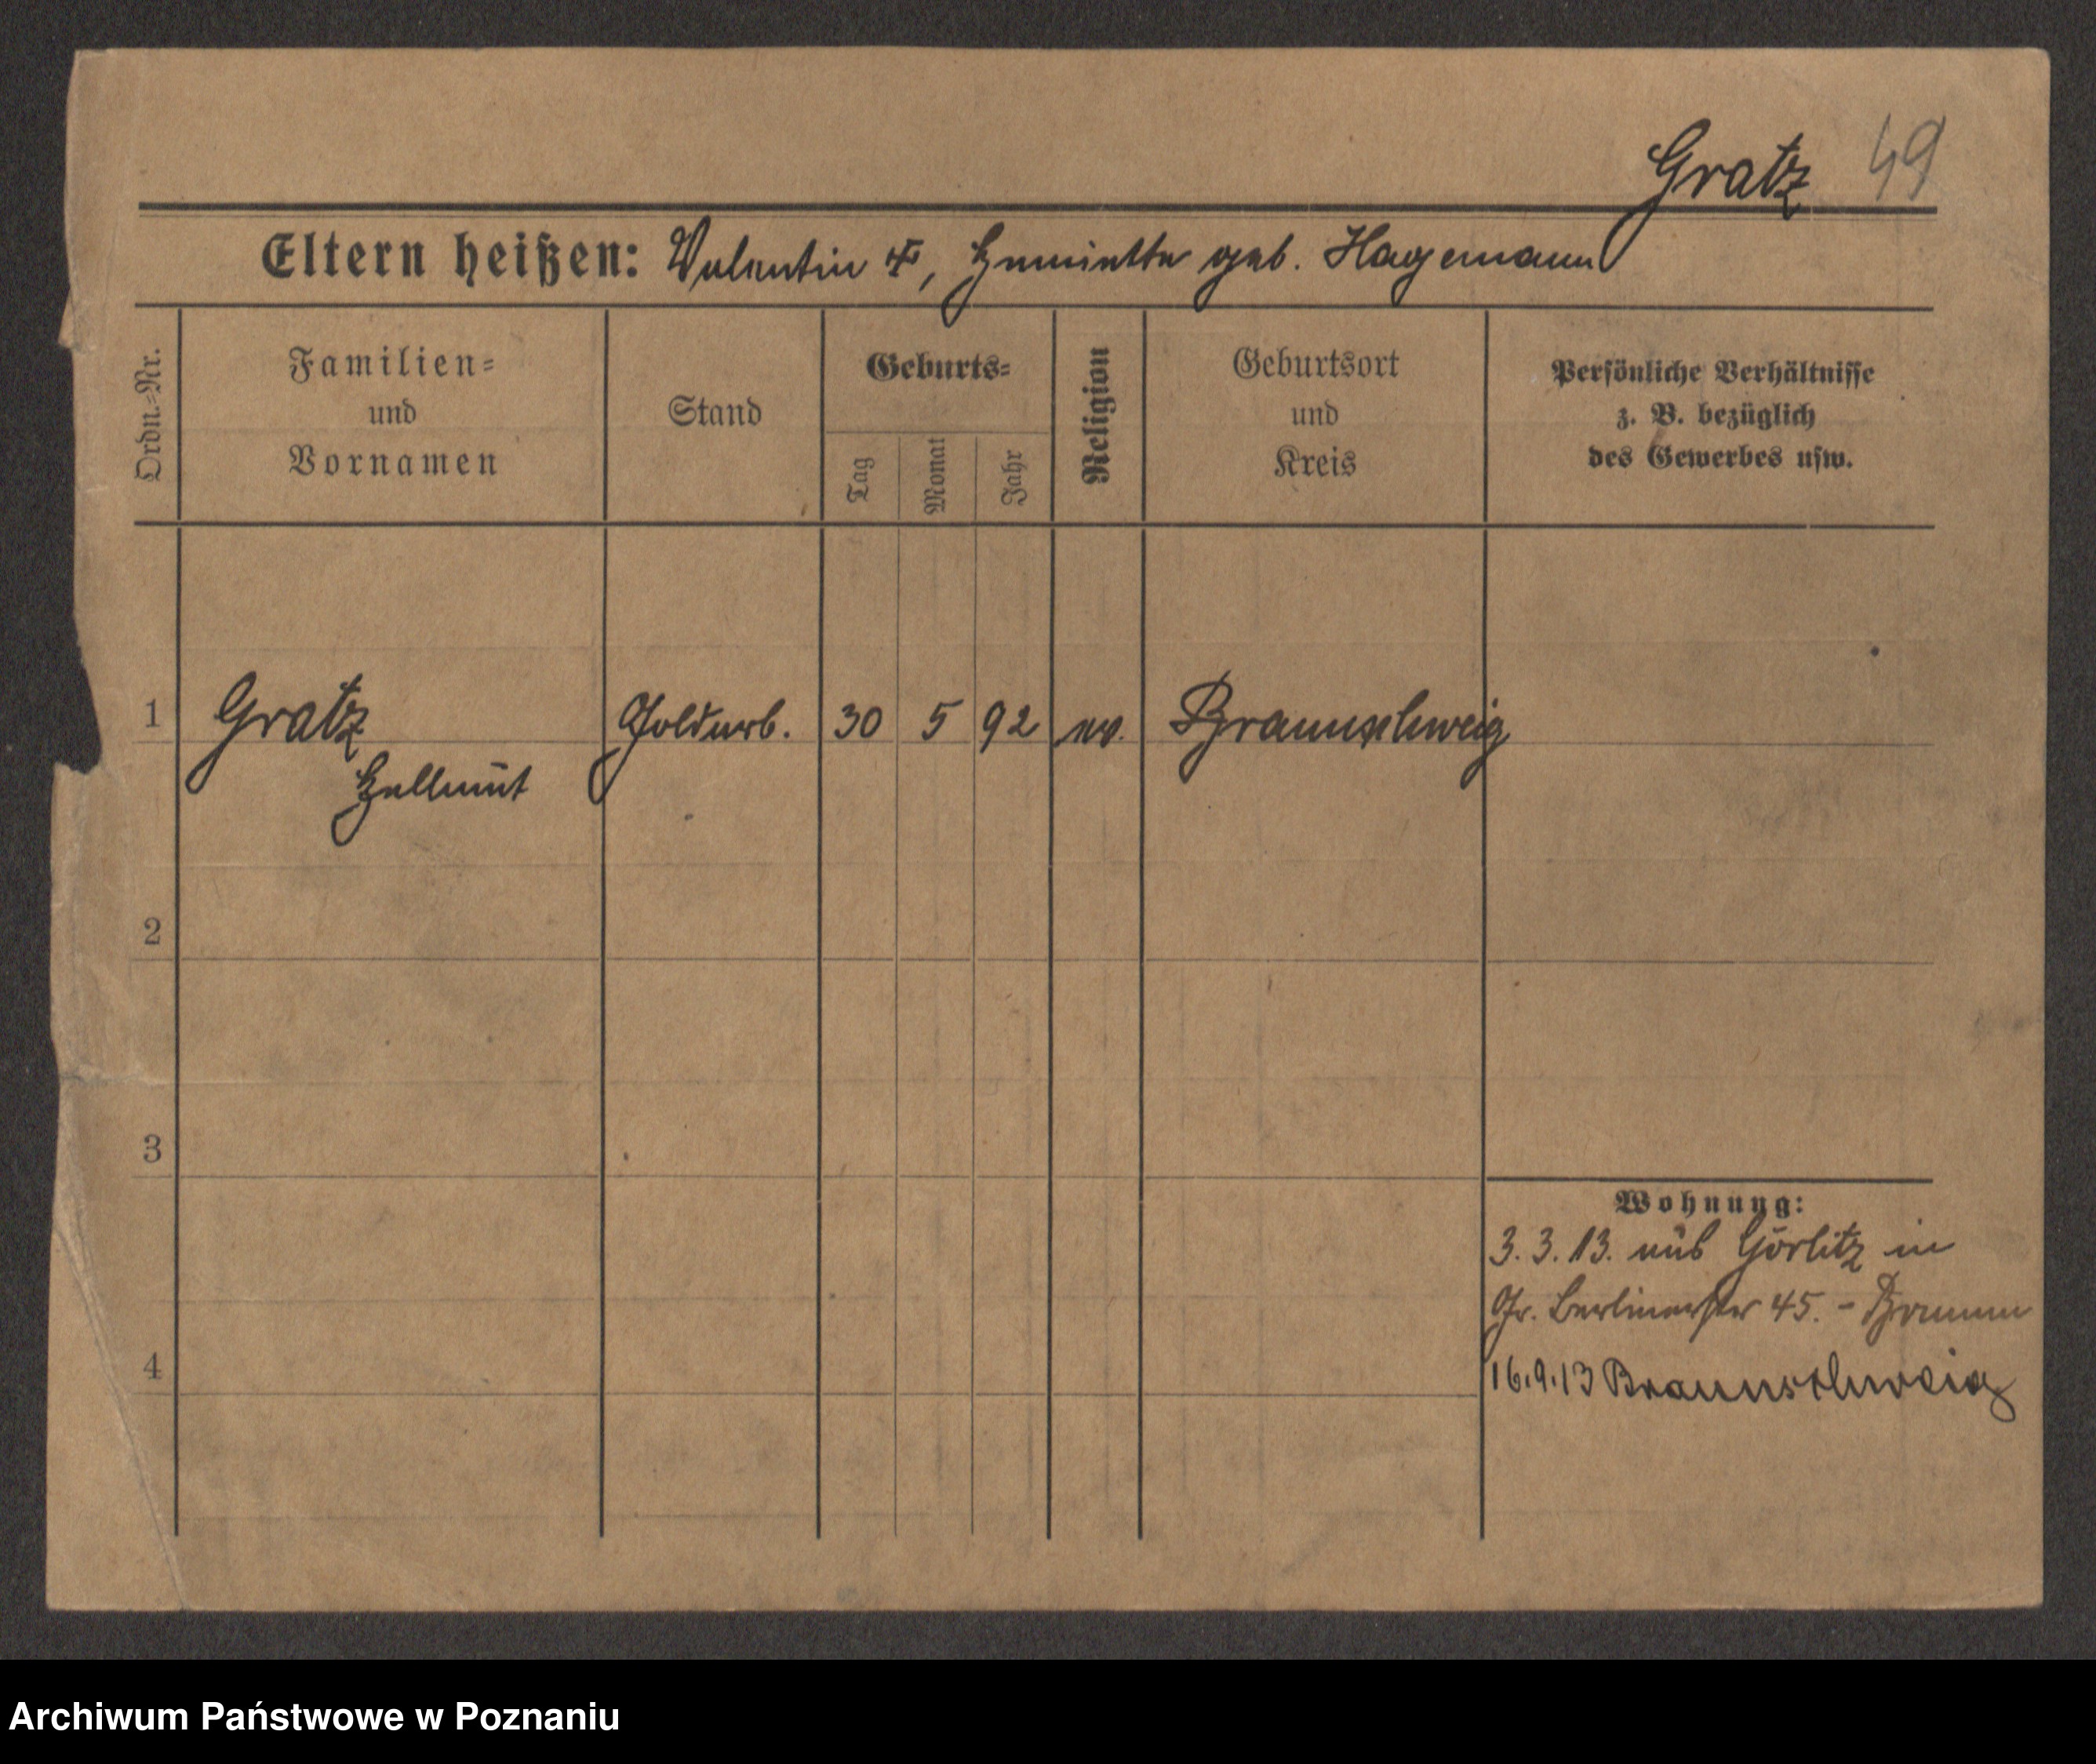 Gratz 49
Eltern heißen: Valentin †, Henriette geb. Hagemann
Ordn.=Nr.
Familien=
und
Vornamen
Stand
Geburts=
Tag
Monat
Jahr
Religion
Geburtsort
und
Kreis
Persönliche Verhältnisse
z. B. bezüglich
des Gewerbes usw.
1 Gratz Goldarb. 30 5 92 ev. Braunschweig
Hellmut
2
3
4
Wohnung:
3.3.13. aus Görlitz in
Gr. Berlinerstr 45. -
16.9.13 Braunschweig
Archiwum Państwowe w Poznaniu